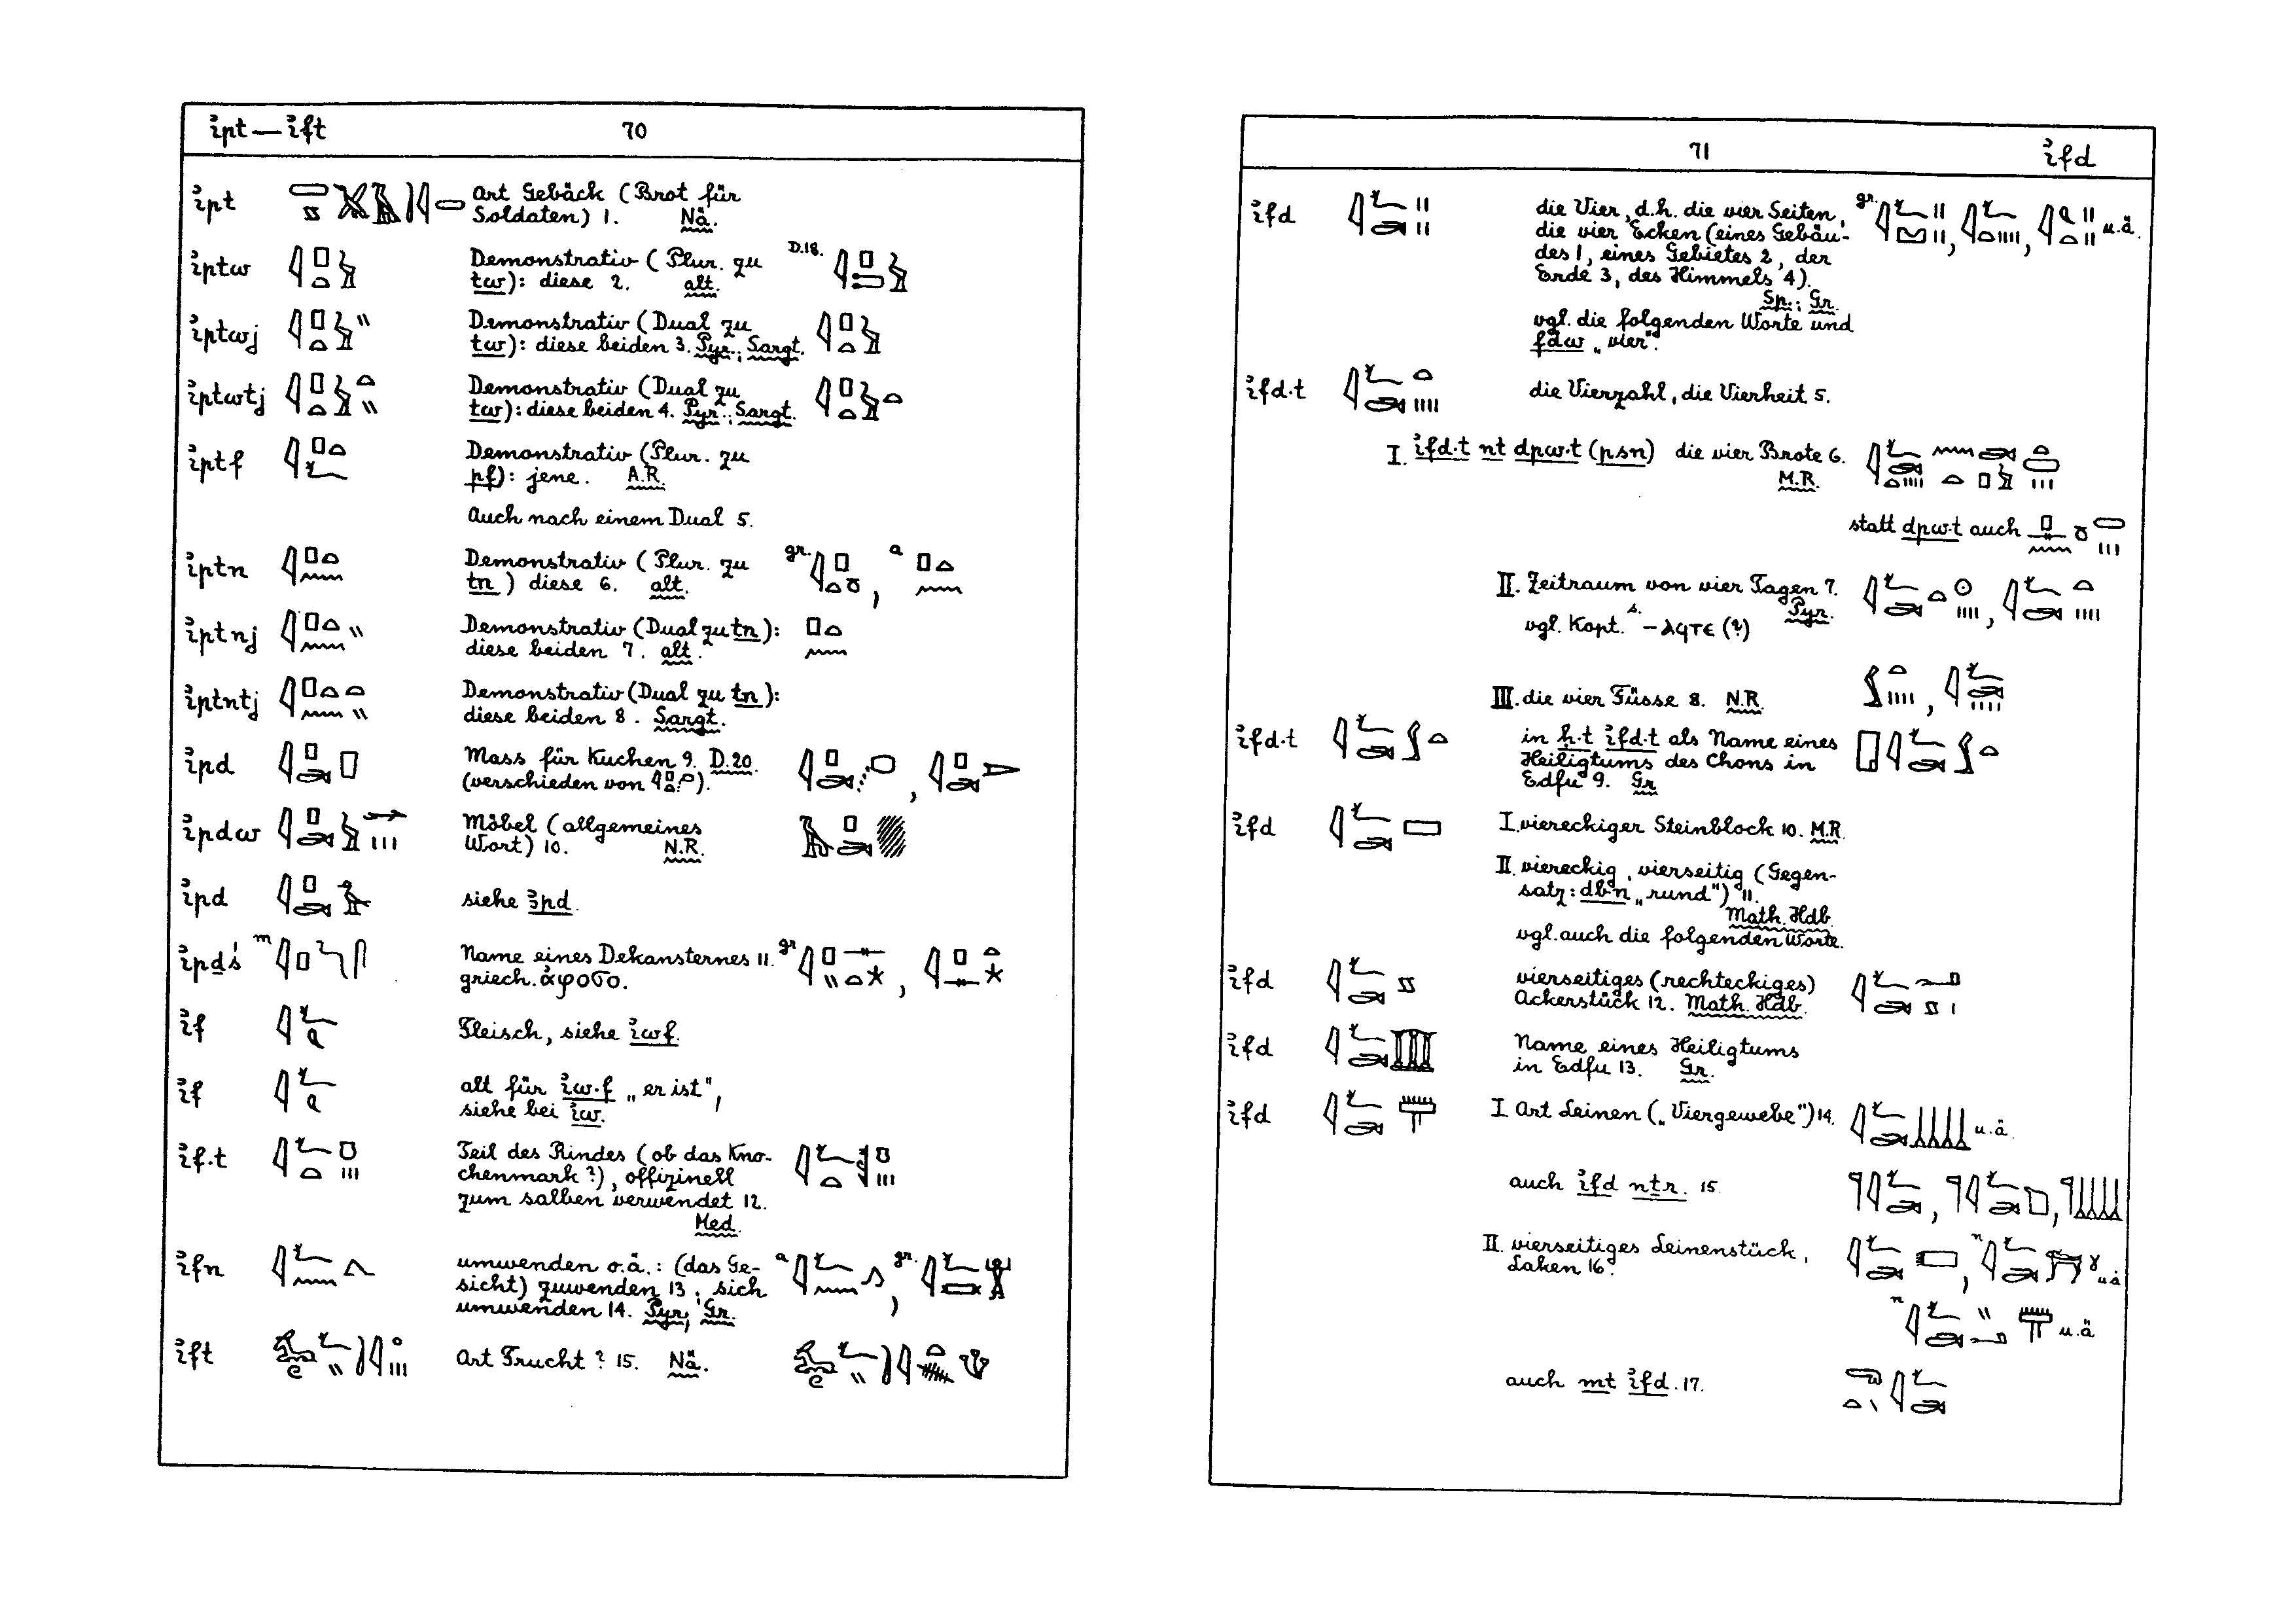 ỉpt — ỉft 70
ỉpt Art Gebäck (Brot für
Soldaten) 1. Nä.
ỉptw Demonstrativ (Plur. zu D.18.
tw): diese 2. alt.
ỉptwj Demonstrativ (Dual zu
tw): diese beiden 3. Pyr.; Sargt.
ỉptwtj Demonstrativ (Dual zu
tw): diese beiden 4. Pyr.; Sargt.
ỉptf Demonstrativ (Plur. zu
pf): jene. A.R.
Auch nach einem Dual 5.
ỉptn Demonstrativ (Plur. zu gr. , a
tn) diese 6. alt.
ỉptnj Demonstrativ (Dual zu tn):
diese beiden 7. alt.
ỉptntj Demonstrativ (Dual zu tn):
diese beiden 8. Sargt.
ỉpd Mass für Kuchen 9. D.20.
(verschieden von ). ,
ỉpdw Möbel (allgemeines
Wort) 10. N.R.
ỉpd siehe ꜣpd.
ỉpḏś m Name eines Dekansternes 11. gr ,
griech. ἀφοσο.
ỉf Fleisch, siehe ỉwf.
ỉf alt für ỉw·f „er ist",
siehe bei ỉw.
ỉf·t Teil des Rindes (ob das Kno-
chenmark?), offizinell
zum salben verwendet 12.
Med.
ỉfn umwenden o.ä.: (das Ge- a , gr.
sicht) zuwenden 13; sich
umwenden 14. Pyr; Gr.
ỉft Art Frucht? 15. Nä.
71 ỉfd
ỉfd die Vier, d.h. die vier Seiten, gr. , , u.ä.
die vier Ecken (eines Gebäu-
des 1, eines Gebietes 2, der
Erde 3, des Himmels 4).
Sp.; Gr.
vgl. die folgenden Worte und
fdw „vier".
ỉfd·t die Vierzahl, die Vierheit 5.
I. ỉfd·t nt dpw·t (psn) die vier Brote 6.
M.R.
statt dpw·t auch
II. Zeitraum von vier Tagen 7. ,
Pyr.
vgl. Kopt. s. –ⲁϥⲧⲉ (?)
III. die vier Füsse 8. N.R. ,
ỉfd·t in ḥ·t ỉfd·t als Name eines
Heiligtums des Chons in
Edfu 9. Gr
ỉfd I. viereckiger Steinblock 10. M.R.
II. viereckig, vierseitig (Gegen-
satz: dbn „rund") 11.
Math. Hdb.
vgl. auch die folgenden Worte.
ỉfd vierseitiges (rechteckiges)
Ackerstück 12. Math. Hdb.
ỉfd Name eines Heiligtums
in Edfu 13. Gr.
ỉfd I. Art Leinen („Viergewebe") 14. u.ä.
auch ỉfd nṯr. 15. , ,
II. vierseitiges Leinenstück, , n u.ä
Laken 16.
n u.ä
auch mt ỉfd. 17.